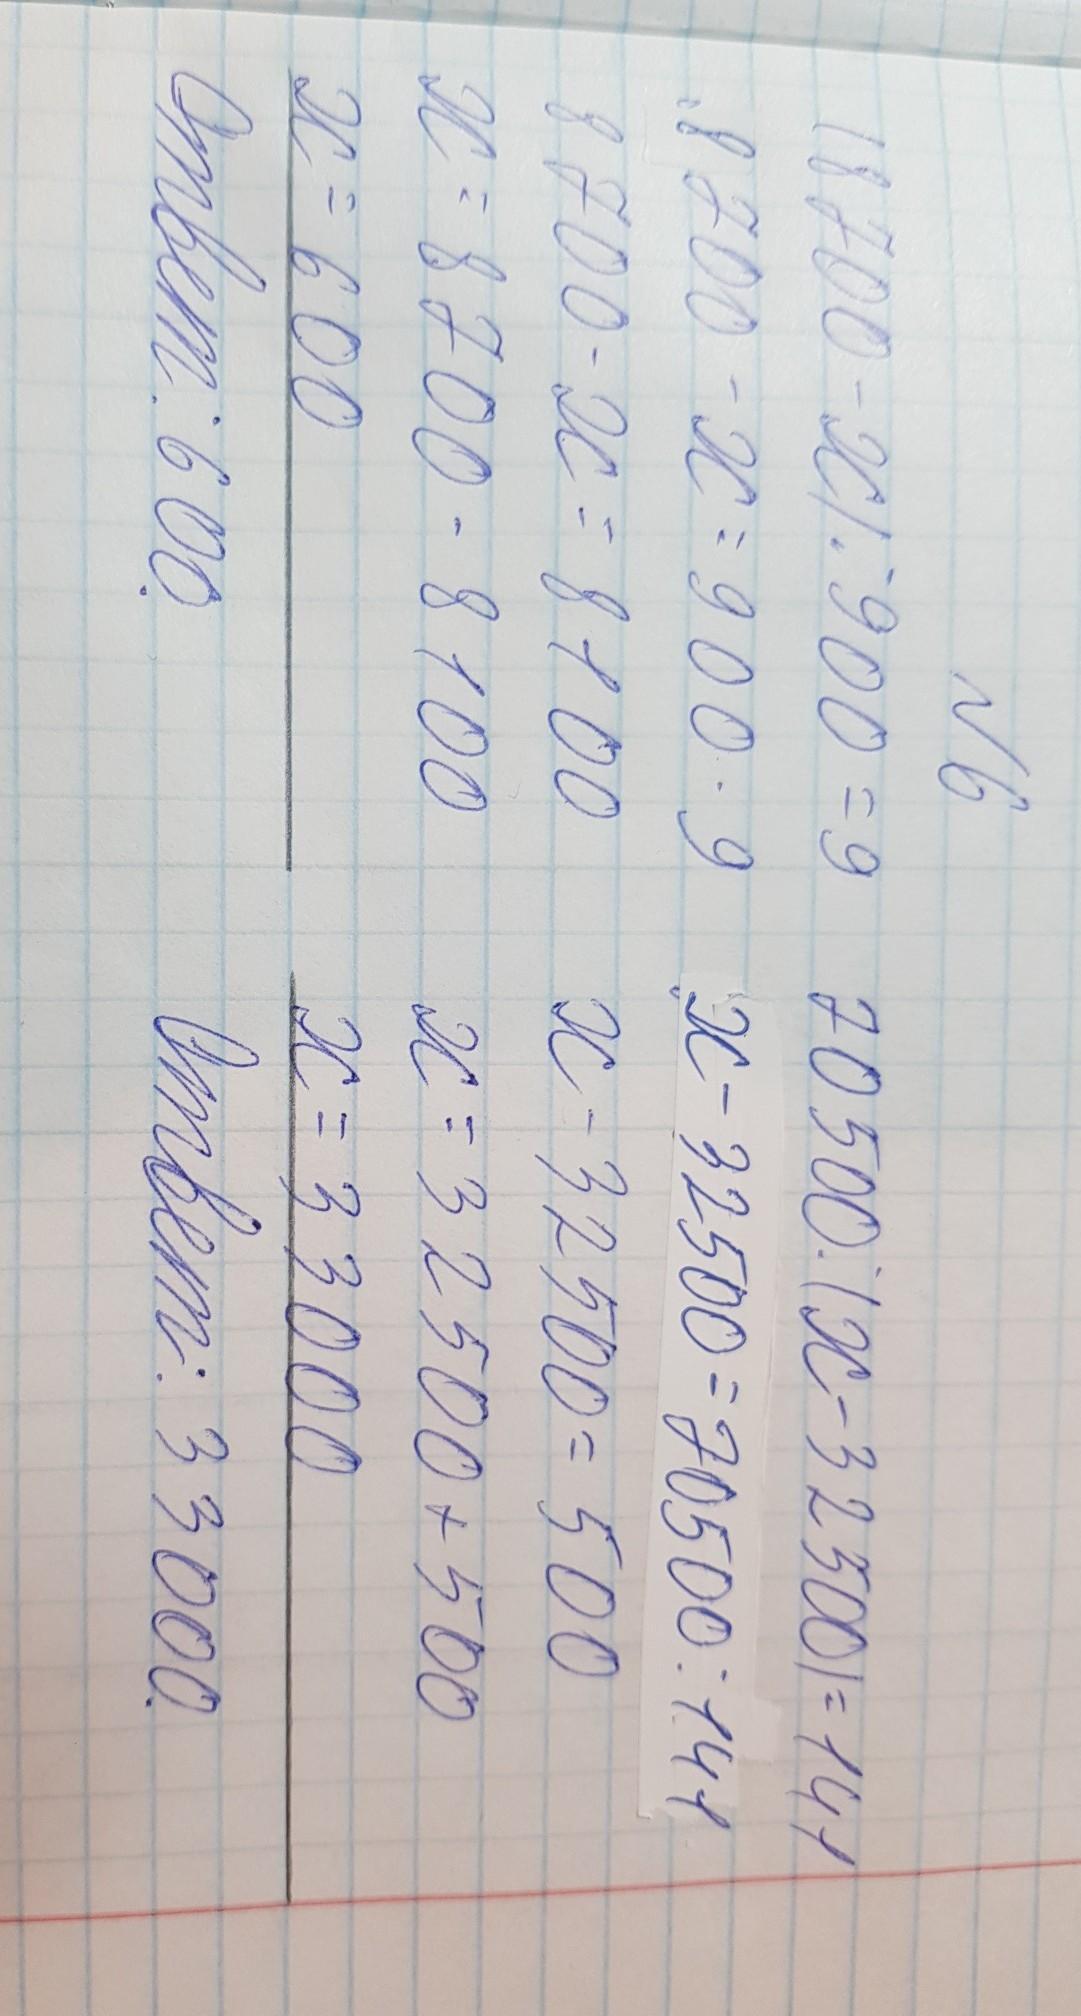 №6
(8700-x):900=9
8700-x=900·9
8700-x=8100
x=8700-8100
x=600
Ответ: 600.
70500:(x-32500)=141
x-32500=70500:141
x-32500=500
x=32500+500
x=33000
Ответ: 33000.